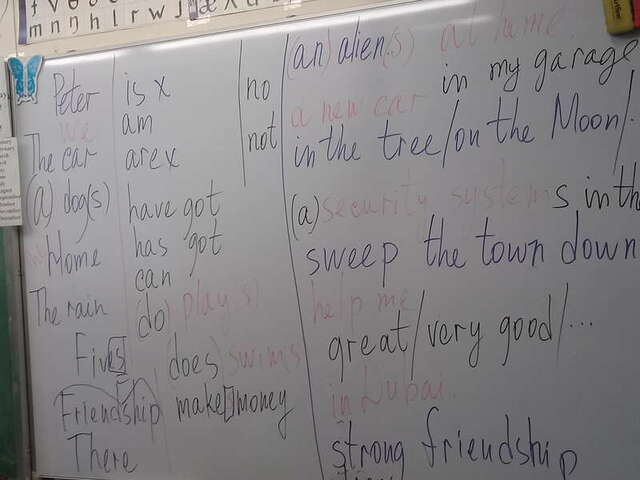 m n ŋ h l r w j
Peter is x no (an) alien(s) at home
we am in my garage
The car are x not a new car
in the tree/on the Moon/.
(A) dog(s) have got (a) security systems in th
Home has got sweep the town down
can
The rain (do) play(s) help me
Fives does swims great/very good/...
Friendship make[]money in Dubai.
There strong friendship